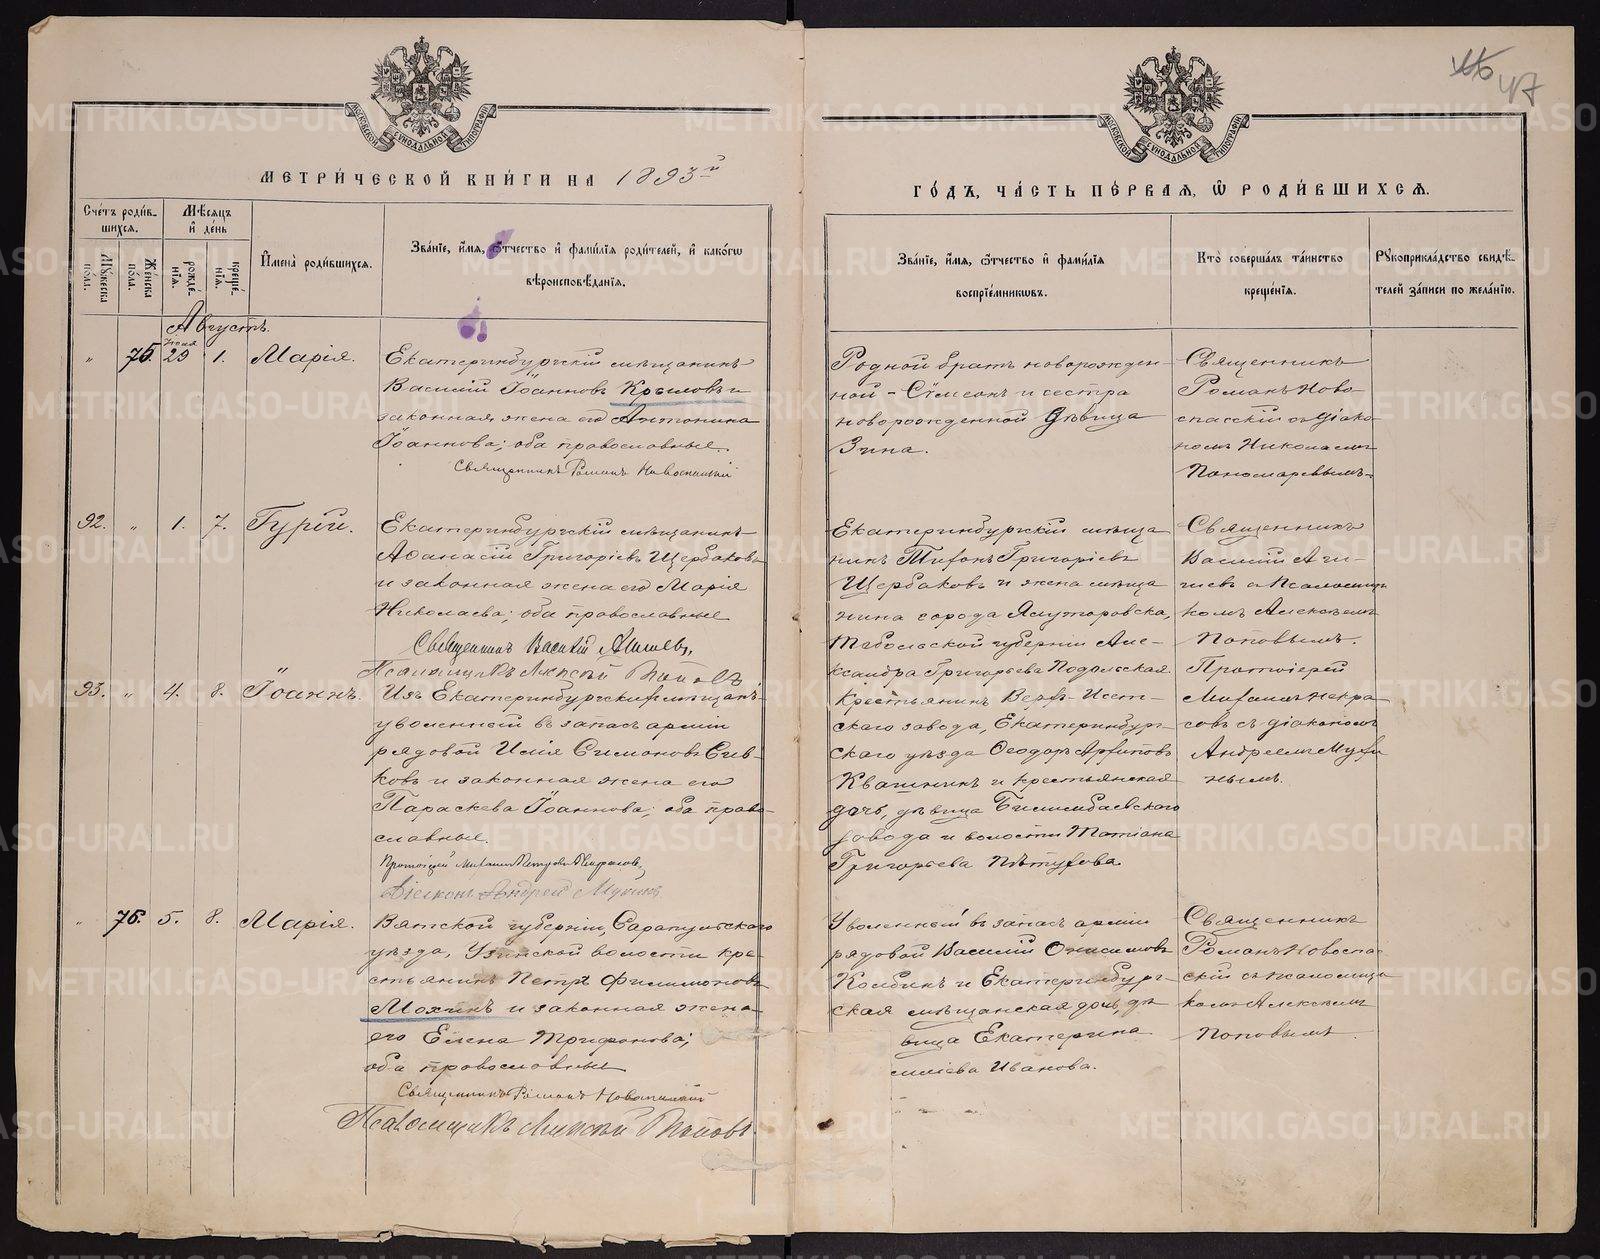 МЕТРИ́ЧЕСКОЙ КНИ́ГИ НА 1893й
ГО́ДЪ, ЧА́СТЬ ПЕ́РВАЯ, Ѿ РОДИ́ВШИХСѦ.
47
МОСКОВСКОЙ СѴНОДАЛЬНОЙ ТИПОГРАФІИ
МОСКОВСКОЙ СѴНОДАЛЬНОЙ ТИПОГРАФІИ
Счетъ роди́в-
шихся.
Мѣсяцъ
и день
Мужеска
пола.
Женска
пола.
рожде-
нія.
креще-
нія.
Имена роди́вшихся.
Званіе, имя, ѻтчество и фамилія родителей, и какогѡ
вѣроисповѣданія.
Званіе, имя, ѻтчество и фамилія
воспріемникѡвъ.
Кто совершалъ таинство
крещенія.
Рукоприкладство свидѣ-
телей записи по желанію.
Августъ.
" 75. Іюля 29 1. Марія.
Екатеринбургскій мѣщанинъ
Василій Іоанновъ Крыловъ и
законная жена его Антонина
Іоаннова; оба православные.
Священникъ Романъ Новоспасскій
Родной братъ новорожден-
ной -
и сестра
новорожденной дѣвица
Зина.
Священникъ
Романъ Ново-
спасскій съ діако-
номъ Николаемъ
Пономаревымъ.
92. " 1. 7. Гурій.
Екатеринбургскій мѣщанинъ
Аѳанасій Григоріевъ Щербаковъ
и законная жена его Марія
Николаева; оба православные
Священникъ Василій Агиевъ,
Псаломщикъ Алексѣй Поповъ
Екатеринбургскій мѣща
нинъ Тихонъ Григоріевъ
Щербаковъ и жена мѣща
нина города Ялуторовска,
Тобольской губерніи Але-
ксандра Григорьева Подольская.
Священникъ
Василій Аги-
евъ с псаломщи
комъ Алексѣемъ
Поповымъ.
93. " 4. 8. Іоаннъ.
Изъ Екатеринбургскихъ мѣщанъ
уволенный въ запасъ арміи
рядовой Илія Симоновъ Сив-
ковъ и законная жена его
Параскева Іоаннова; оба право-
славные.
Протоіерей Михаилъ Петровъ Некрасовъ,
Діаконъ Андрей Мухинъ
Крестьянинъ Верхъ-Исет-
скаго завода, Екатеринбург-
скаго уѣзда Ѳеодоръ Архиповъ
Квашнинъ и крестьянская
дочь, дѣвица Билимбаевскаго
завода и волости Татіана
Григорьева Пѣтухова.
Протоіерей
Михаилъ Некра
совъ съ діакономъ
Андреемъ Мухи
нымъ.
" 76. 5. 8. Марія.
Вятской губерніи, Сарапульскаго
уѣзда, Узинской волости кре-
стьянинъ Петръ Филимоновъ
Мохинъ и законная жена
его Елена Трифонова;
оба православные
Священникъ Романъ Новоспасскій
Псаломщикъ Алексѣй Поповъ.
Уволенный въ запасъ арміи
рядовой Василій Онисимовъ
Колбинъ и Екатеринбург-
ская мѣщанская дочь, дѣ
вица Екатерина
Иванова.
Священникъ
Романъ Новоспас-
скій съ псаломщи
комъ Алексѣемъ
Поповымъ
METRIKI.GASO-URAL.RU